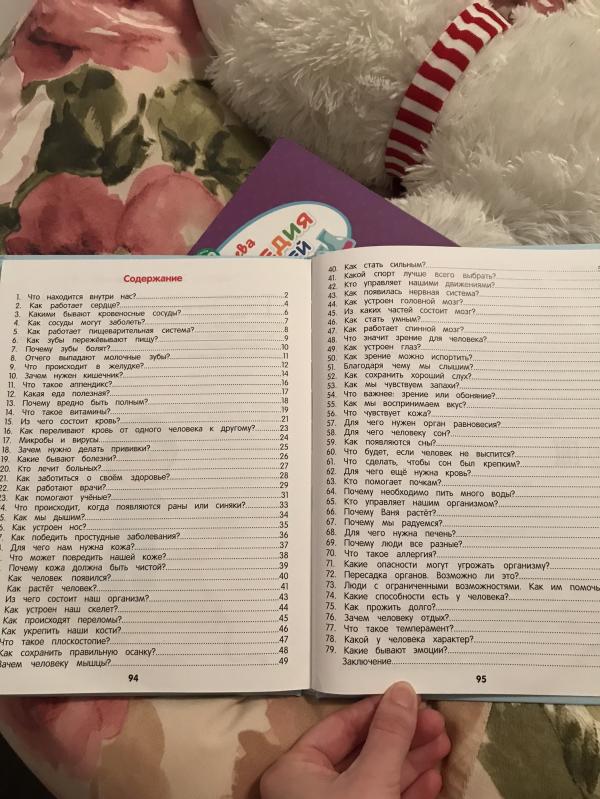 ева
ЕДИЯ
ЕЙ
Содержание
1. Что находится внутри нас?..........2
2. Как работает сердце?..........4
3. Какими бывают кровеносные сосуды?..........6
4. Как сосуды могут заболеть?..........7
5. Как работает пищеварительная система?..........8
6. Как зубы пережёвывают пищу?..........9
7. Почему зубы болят?..........10
8. Отчего выпадают молочные зубы?..........11
9. Что происходит в желудке?..........12
10. Зачем нужен кишечник?..........14
11. Что такое аппендикс?..........16
12. Какая еда полезная?..........17
13. Почему вредно быть полным?..........18
14. Что такое витамины?..........19
15. Из чего состоит кровь?..........21
16. Как переливают кровь от одного человека к другому?..........23
17. Микробы и вирусы..........24
18. Зачем нужно делать прививки?..........25
19. Какие бывают болезни?..........26
20. Кто лечит больных?..........27
21. Как заботиться о своём здоровье?..........28
22. Как работают врачи?..........29
23. Как помогают учёные?..........31
4. Что происходит, когда появляются раны или синяки?..........33
5. Как мы дышим?..........34
6. Как устроен нос?..........35
7. Как победить простудные заболевания?..........36
. Для чего нам нужна кожа?..........37
. Что может повредить нашей коже?..........38
. Почему кожа должна быть чистой?..........39
Как человек появился?..........40
Как растёт человек?..........41
Из чего состоит наш организм?..........43
Как устроен наш скелет?..........44
Как происходят переломы?..........45
Как укрепить наши кости?..........46
Что такое плоскостопие?..........47
Как сохранить правильную осанку?..........48
Зачем человеку мышцы?..........49
94
40. Как стать сильным?..........
41. Какой спорт лучше всего выбрать?..........
42. Кто управляет нашими движениями?..........
43. Как появилась нервная система?..........
44. Как устроен головной мозг?..........
45. Из каких частей состоит мозг?..........
46. Как стать умным?..........
47. Как работает спинной мозг?..........
48. Что значит зрение для человека?..........
49. Как устроен глаз?..........
50. Как зрение можно испортить?..........
51. Благодаря чему мы слышим?..........
52. Как сохранить хороший слух?..........
53. Как мы чувствуем запахи?..........
54. Что важнее: зрение или обоняние?..........
55. Как мы воспринимаем вкус?..........
56. Что чувствует кожа?..........
57. Для чего нужен орган равновесия?..........
58. Для чего человеку сон?..........
59. Как появляются сны?..........
60. Что будет, если человек не выспится?..........
61. Что сделать, чтобы сон был крепким?..........
62. Для чего ещё нужна кровь?..........
63. Кто помогает почкам?..........
64. Почему необходимо пить много воды?..........
65. Кто управляет нашим организмом?..........
66. Почему Ваня растёт?..........
67. Почему мы радуемся?..........
68. Для чего нужна печень?..........
69. Почему люди все разные?..........
70. Что такое аллергия?..........
71. Какие опасности могут угрожать организму?..........
72. Пересадка органов. Возможно ли это?..........
73. Люди с ограниченными возможностями. Как им помочь
74. Какие способности есть у человека?..........
75. Как прожить долго?..........
76. Зачем человеку отдых?..........
77. Что такое темперамент?..........
78. Какой у человека характер?..........
79. Какие бывают эмоции?..........
Заключение..........
95